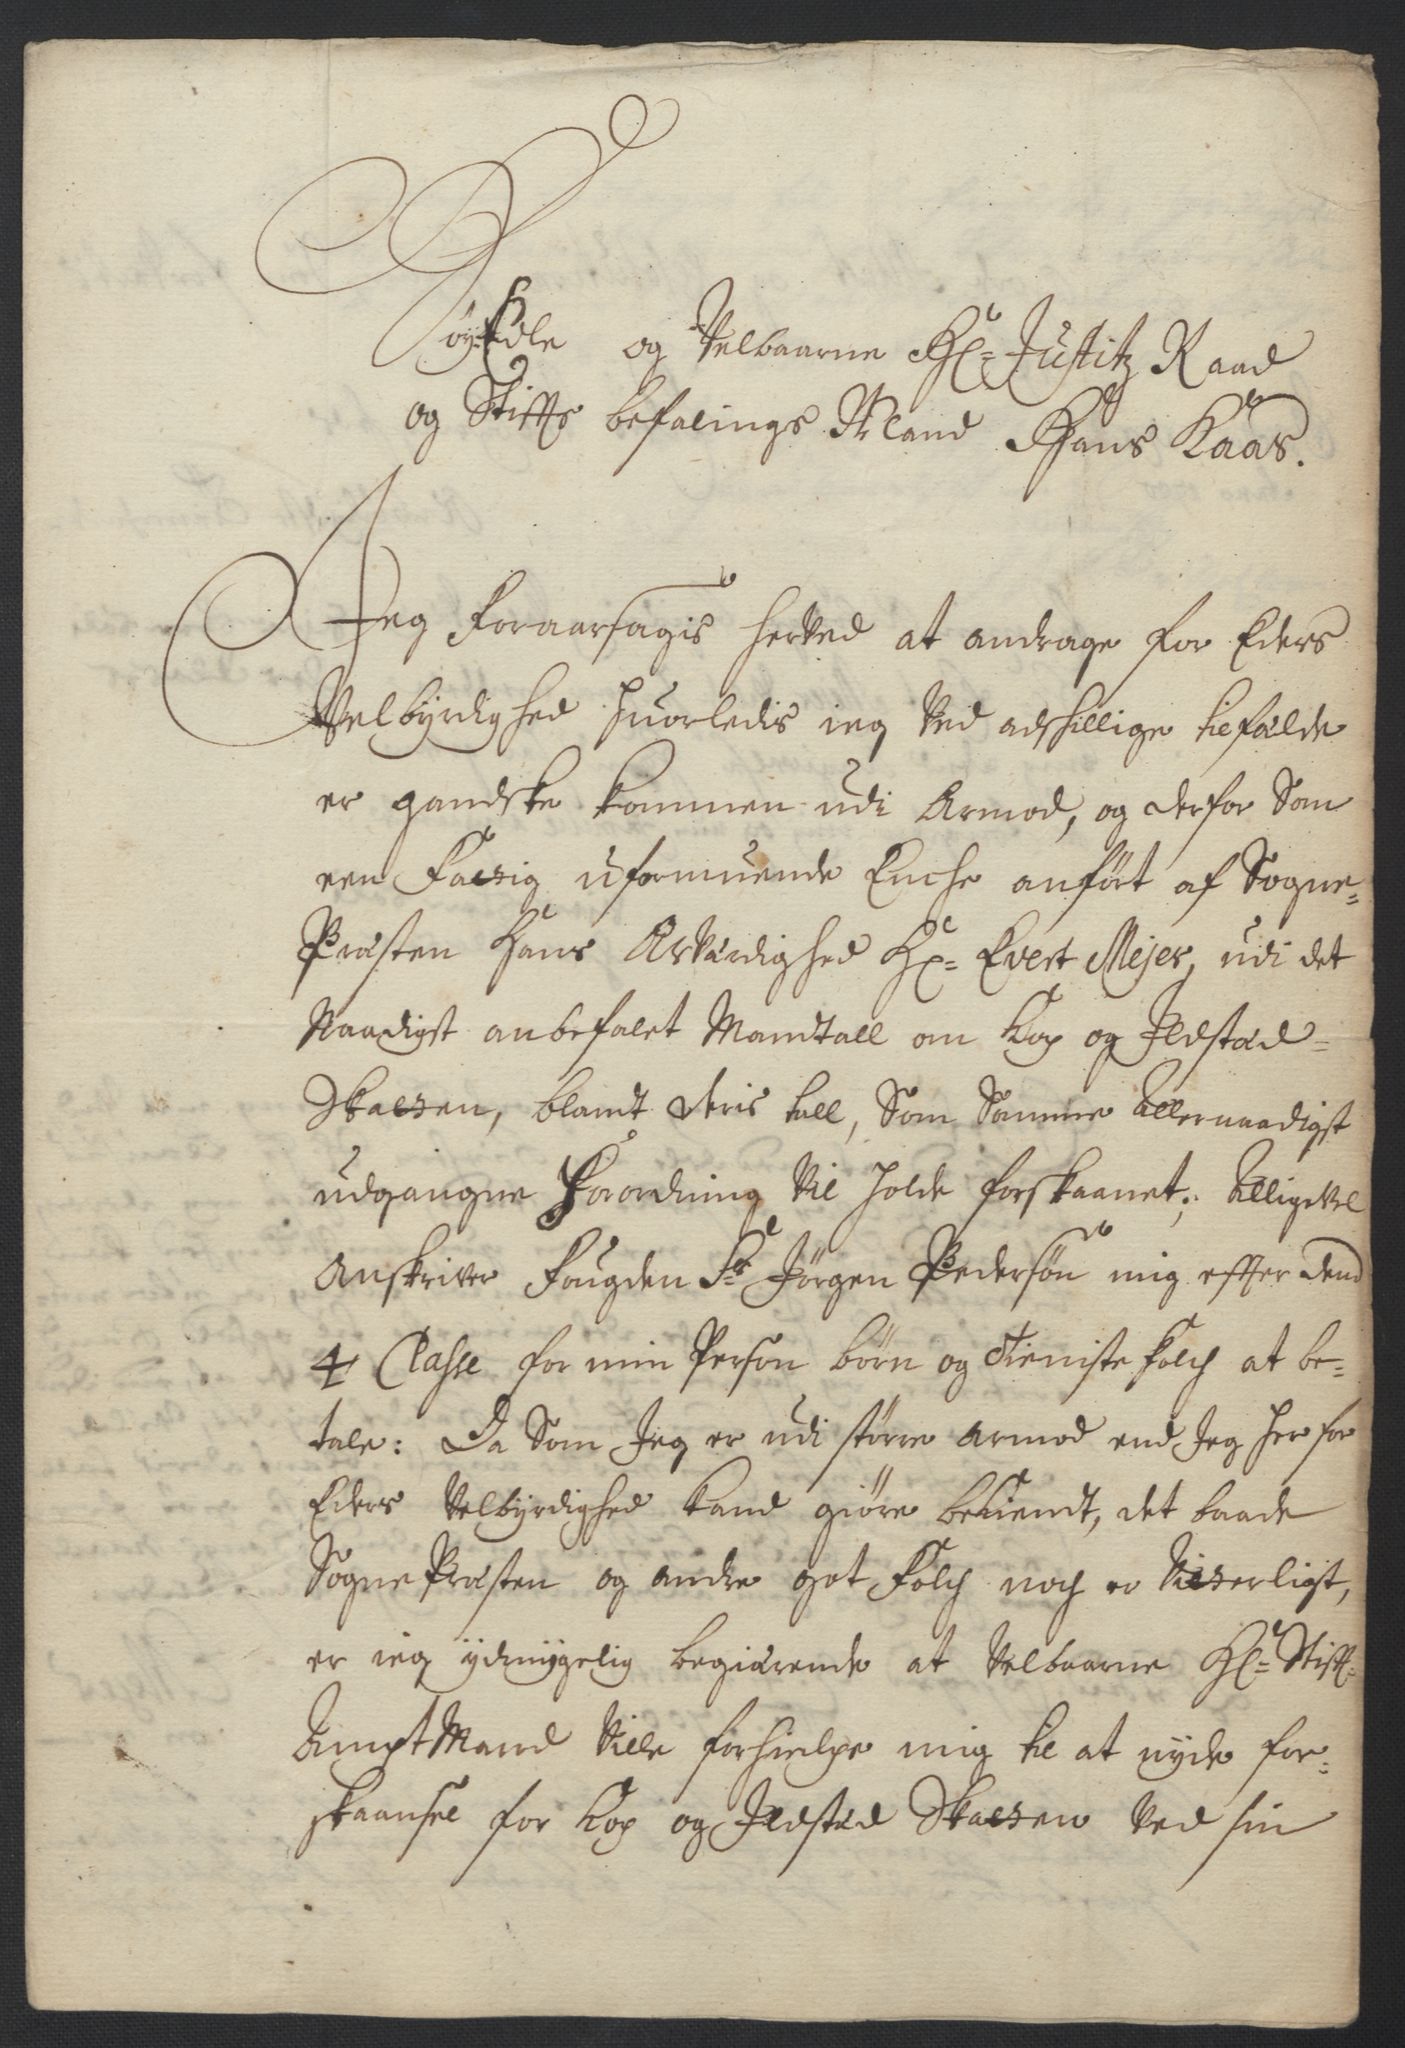 HøyEdle og Velbaarne Hr= Justitz Raad
og Stiffts befalings Mand Hans Kaas.
Jeg Foraarsagis herved at andrage for Eders
Velbyrdighed huorledis ieg ved adskillige tilfælde
er gandske kommen udi Armod, og derfor Som
een Fattig uformuende Enche anført af Sogne-
Præsten Hans Ærværdighed Hr= Evert Mejer, udi det
Naadigst anbefalet Mandtall om Kop og Ildstæd-
Skatten, blandt deris tall, Som Samme Allernaadigst
udgangne Forordning vil holde forskaanet; Alligevel
Anskriver Fougden Sr Jørgen Pedersøn mig effter dend
4 Classe for min Person børn og tieniste folch at be-
tale: Da Som Jeg er udi større armod end Jeg her for
Eders Velbyrdighed kand giøre bekiendt, det baade
Sogne Præsten og andre got Folch noch er vitterligt,
er ieg ydmygelig begiærende at Velbaarne Hr= Stifft-
AmptMand ville forhielpe mig til at nyde for-
skaansel for Kop og Ildstæd Skatten ved sin